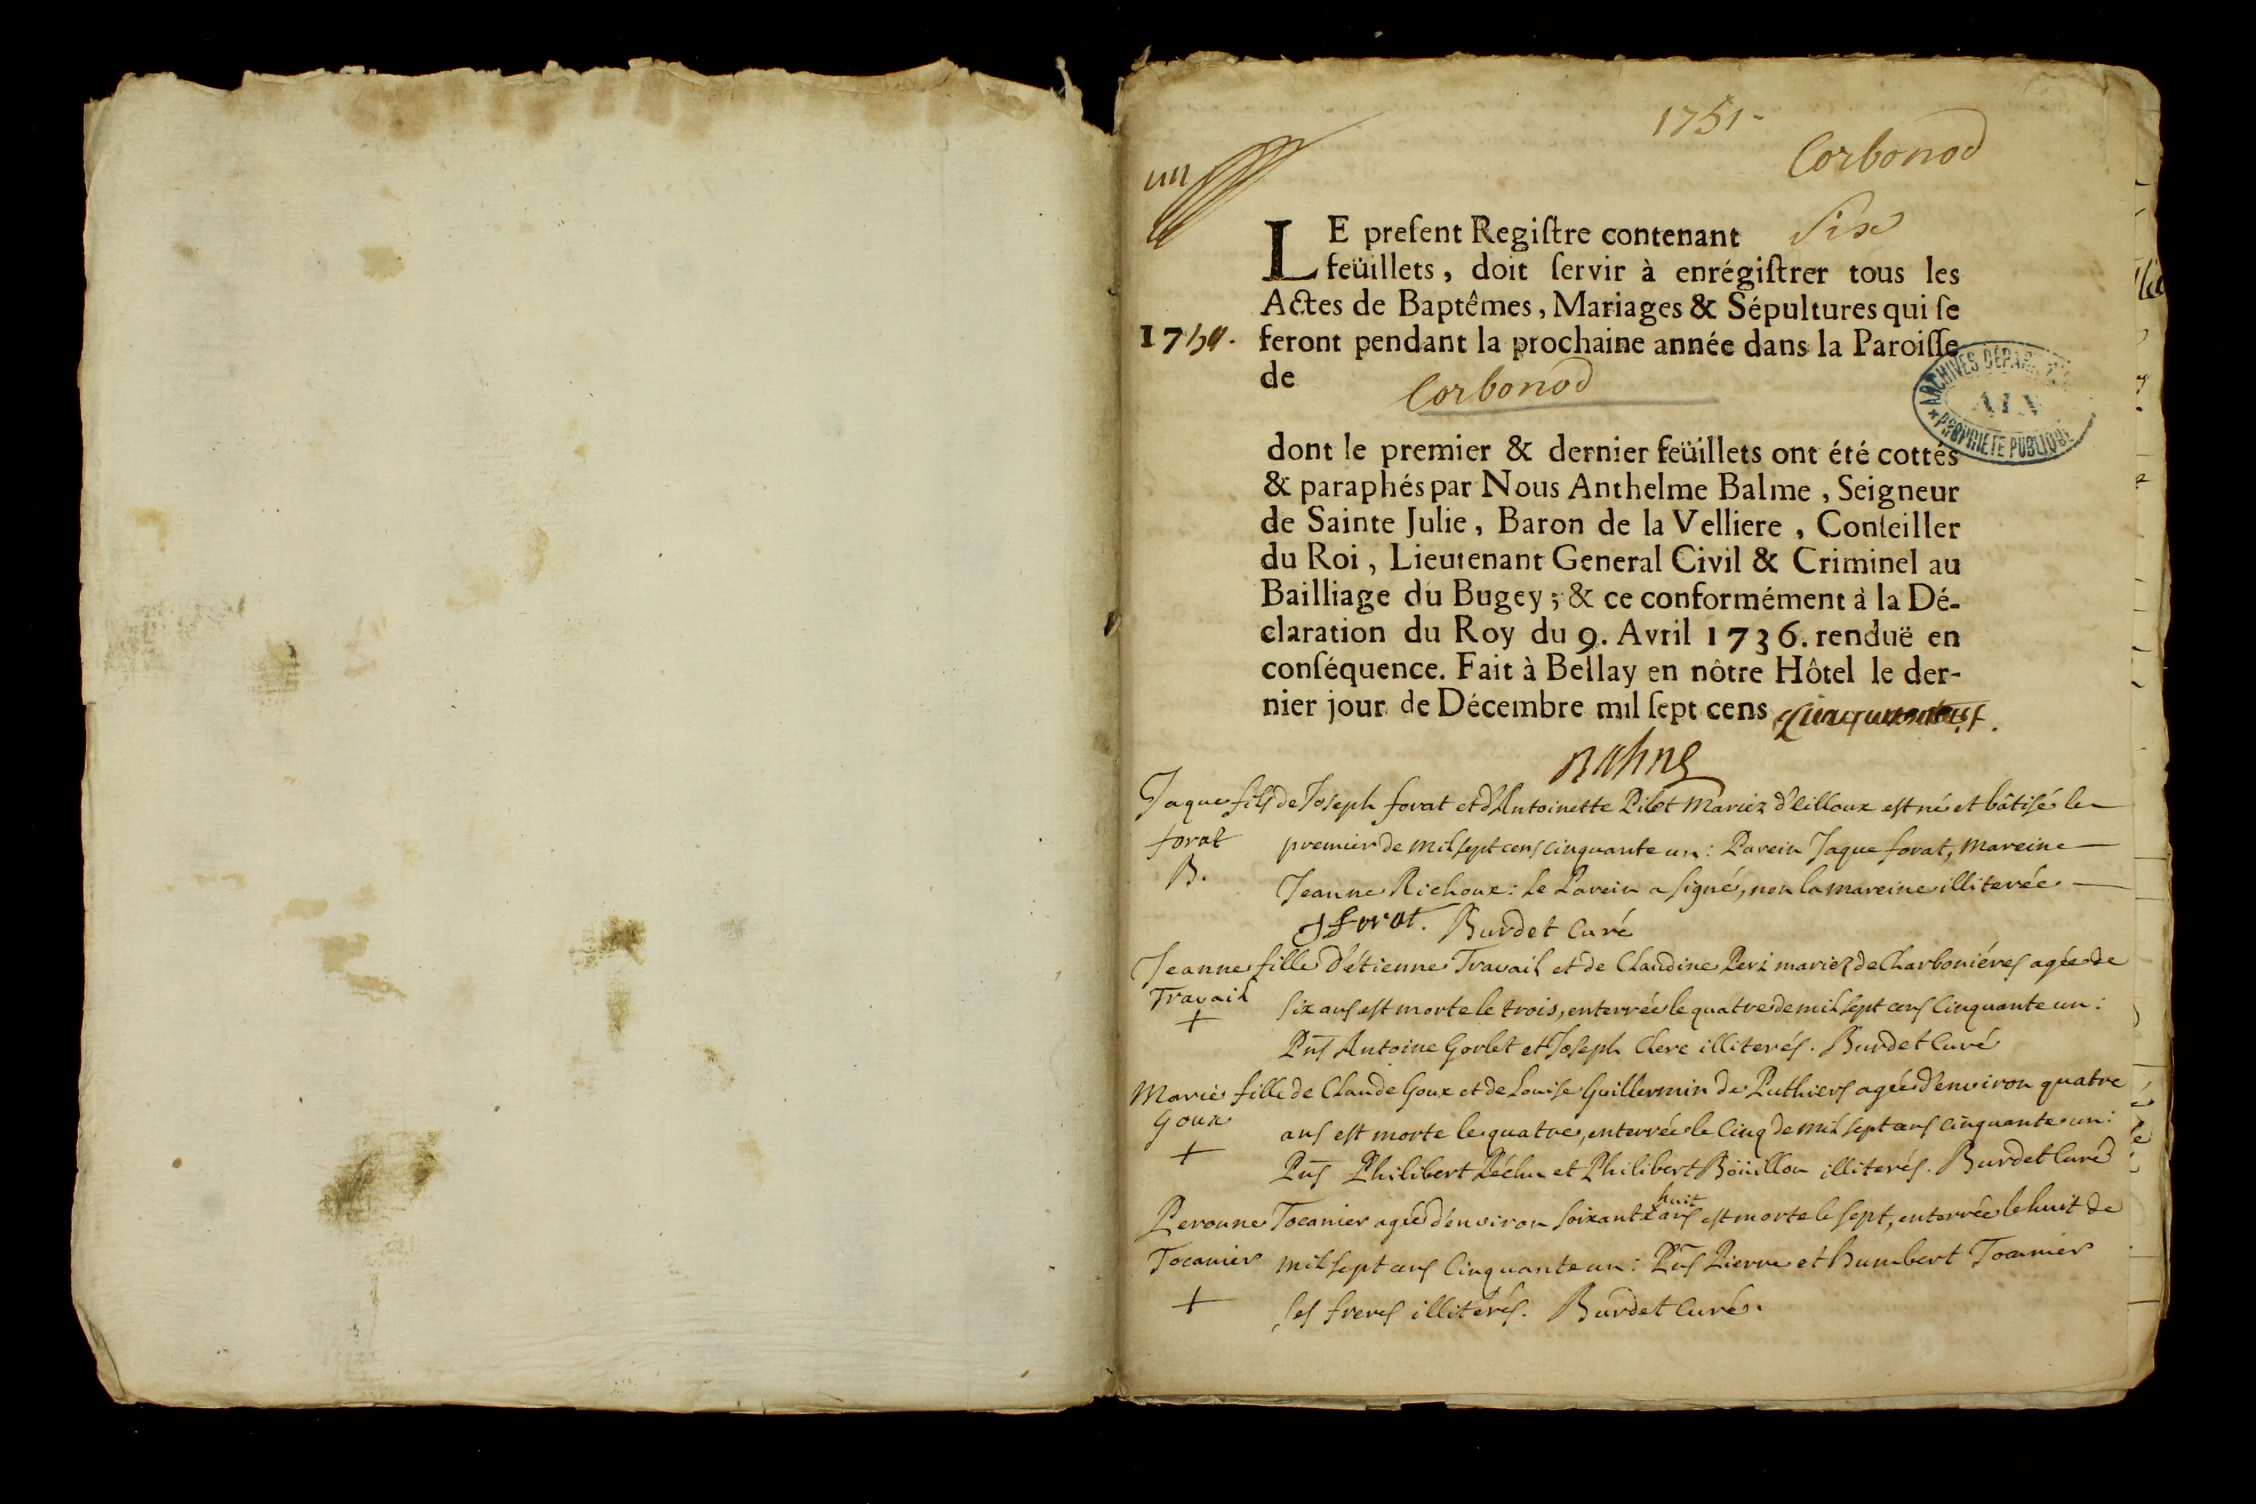 1751-
Corbonod
LE present Registre contenant Six
feüillets, doit servir à enrégistrer tous les
Actes de Baptêmes, Mariages & Sépultures qui se
feront pendant la prochaine année dans la Paroisse
de Corbonod
ARCHIVES DÉPARTEMENTALES
AIN
PROPRIÉTÉ PUBLIQUE
dont le premier & dernier feüillets ont été cottés
& paraphés par Nous Anthelme Balme, Seigneur
de Sainte Julie, Baron de la Velliere, Conseiller
du Roi, Lieutenant General Civil & Criminel au
Bailliage du Bugey; & ce conformément à la Dé-
claration du Roy du 9. Avril 1736. renduë en
conséquence. Fait à Bellay en nôtre Hôtel le der-
nier jour de Décembre mil sept cens
Balme
Jaque fils de Joseph forat et d'Antoinette Pilot Mariez d'eilloux est né et bâtisé le
forat premier de mil sept cens cinquante un: Parein Jaque forat, Mareine
B. Jeanne Richoux: Le Parein a signé, non la mareine illiterée
J forat. Burdet Curé
Jeanne fille d'étienne Travail et de Claudine Peri mariez de Charboniéres agée de
Travail six ans est morte le trois, enterrée le quatre de mil sept cens Cinquante un:
+ Pns Antoine Gorlet et Joseph Clerc illiterés. Burdet Curé
Marie fille de Claude Goux et de Louise Guillermin de Puthiers agée d'environ quatre
Goux ans est morte le quatre, enterrée le Cinq de mil sept cens cinquante un:
+ Pns Philibert Péchu et Philibert Boüillon illiterés. Burdet Curé
Peronne Tocanier agée d'environ soixante huit ans est morte le sept, enterrée le huit de
Tocanier mil sept cens Cinquante un: Pns Pierre et humbert Tocanier
+ ses freres illiterés. Burdet Curé.